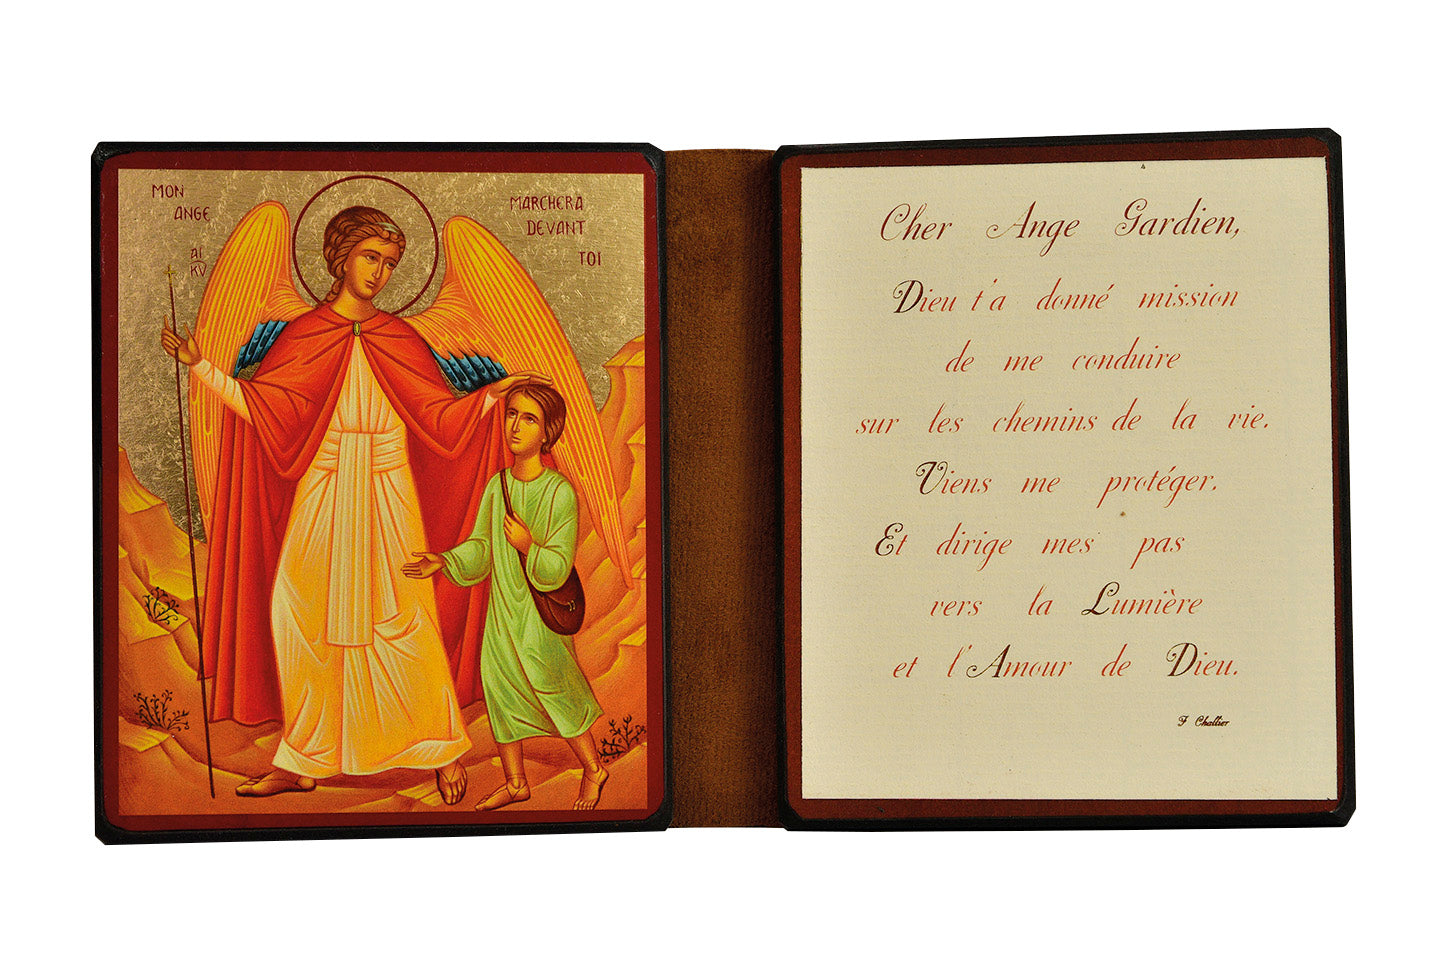 MON
ANGE
MARCHERA
DEVANT
TOI
Cher Ange Gardien,
Dieu t'a donné mission
de me conduire
sur les chemins de la vie.
Viens me protéger.
Et dirige mes pas
vers la Lumière
et l'Amour de Dieu.
F Challier